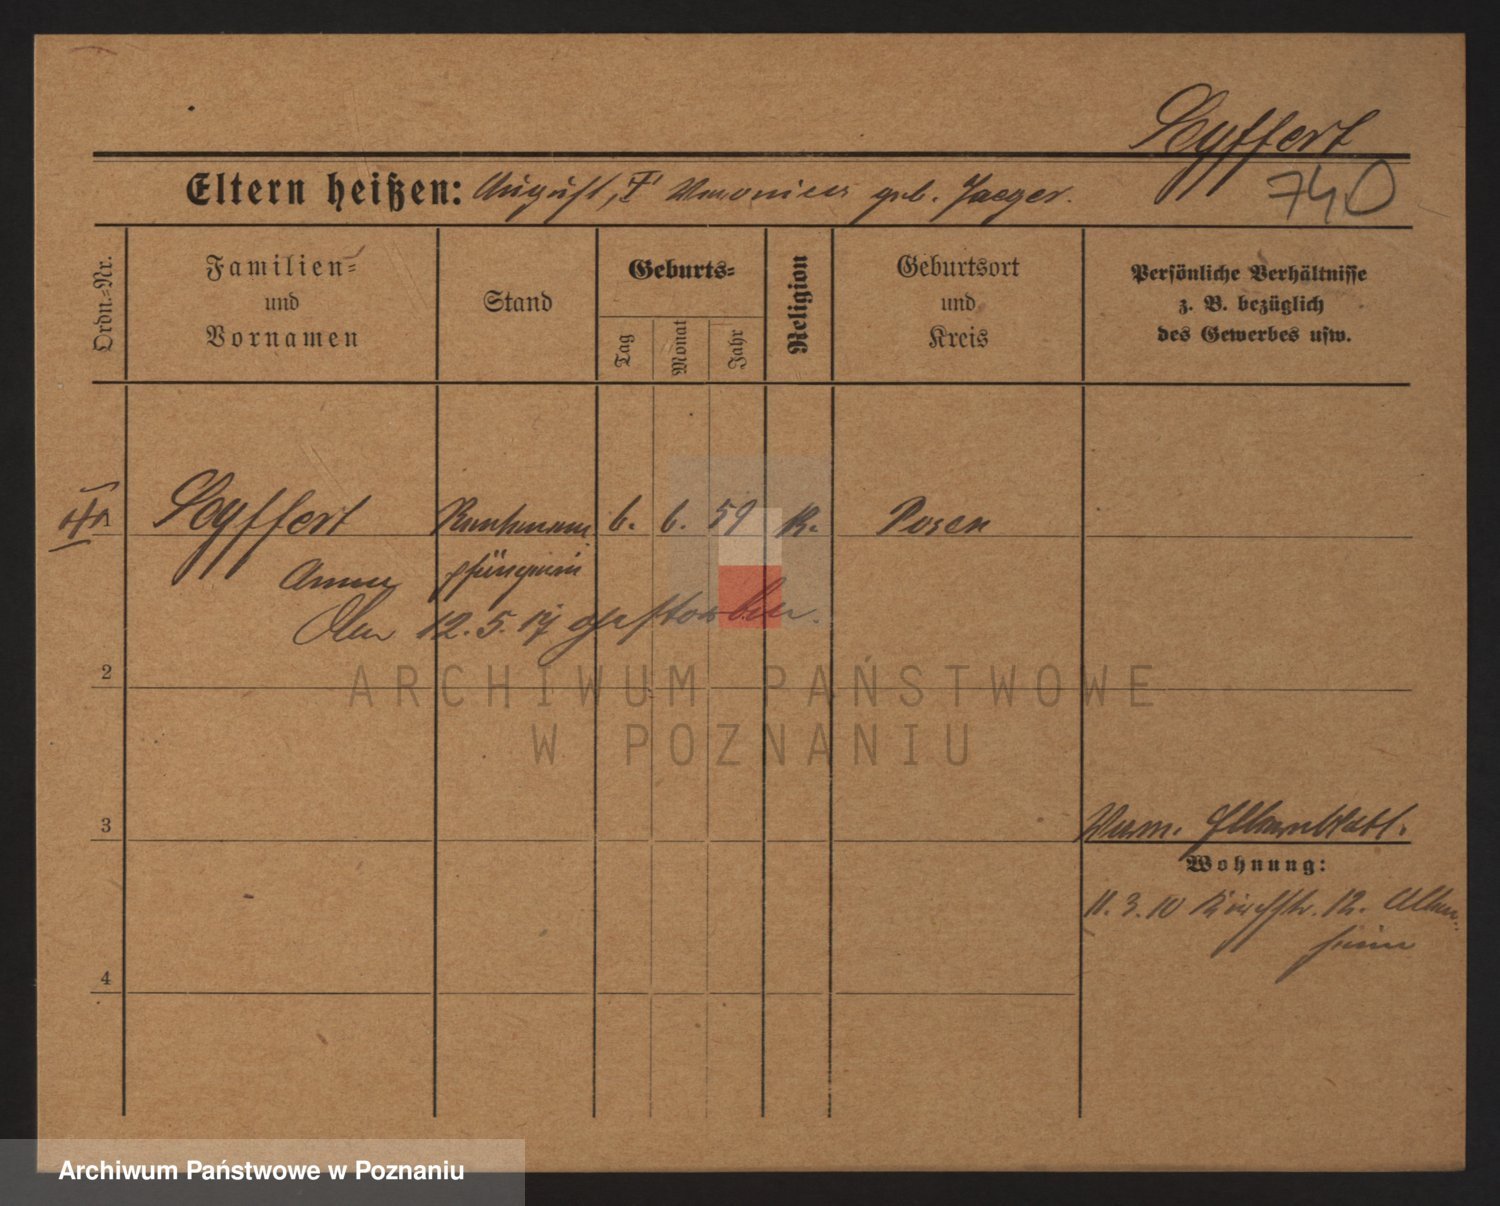 Seyffert
740
Eltern heißen: August, † Veronica geb. Jaeger.
Ordn.=Nr.
Familien=
und
Vornamen
Stand
Geburts=
Tag
Monat
Jahr
Religion
Geburtsort
und
Kreis
Persönliche Verhältnisse
z. B. bezüglich
des Gewerbes usw.
Seyffert
6. 6. 59 K. Posen
Anna
Am 12.5.17 gestorben.
2
3
Wohnung:
11.3.10 12. Alten
heim
4
ARCHIWUM PAŃSTWOWE
W POZNANIU
Archiwum Państwowe w Poznaniu